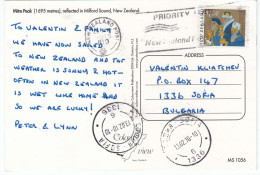 Mitre Peak (1695 metres), reflected in Milford Sound, New Zealand.
PRIORITY
New Zealand
ADDRESS
TO VALENTIN & FAMILY
WE HAVE NOW SAILED
TO NEW ZEALAND AND THE
WEATHER IS SUNNY & HOT -
OFTEN IN NEW ZEALAND IT
IS WET LIKE HOME AND
SO WE ARE LUCKY!
PETER & LYNN
VALENTIN KLIATCHEV
P.O. BOX 147
1336 SOFIA
BULGARIA
1336
view
MS 1056